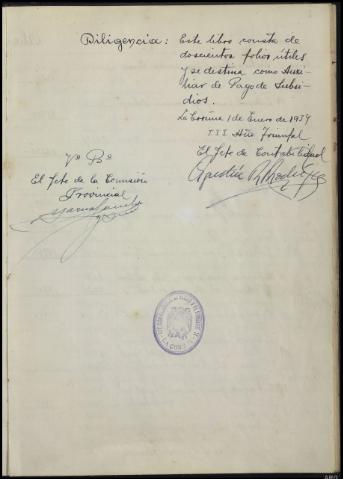 Diligencia: Este libro consta de
doscientos folios útiles
y se destina como Auxi-
liar de Pago de Subsi-
dios.
La Coruña 1 de Enero de 1939
III Año Triunfal
El Jefe de Contabilidad
Agustín
Vº Bº
El Jefe de la Comisión
Provincial